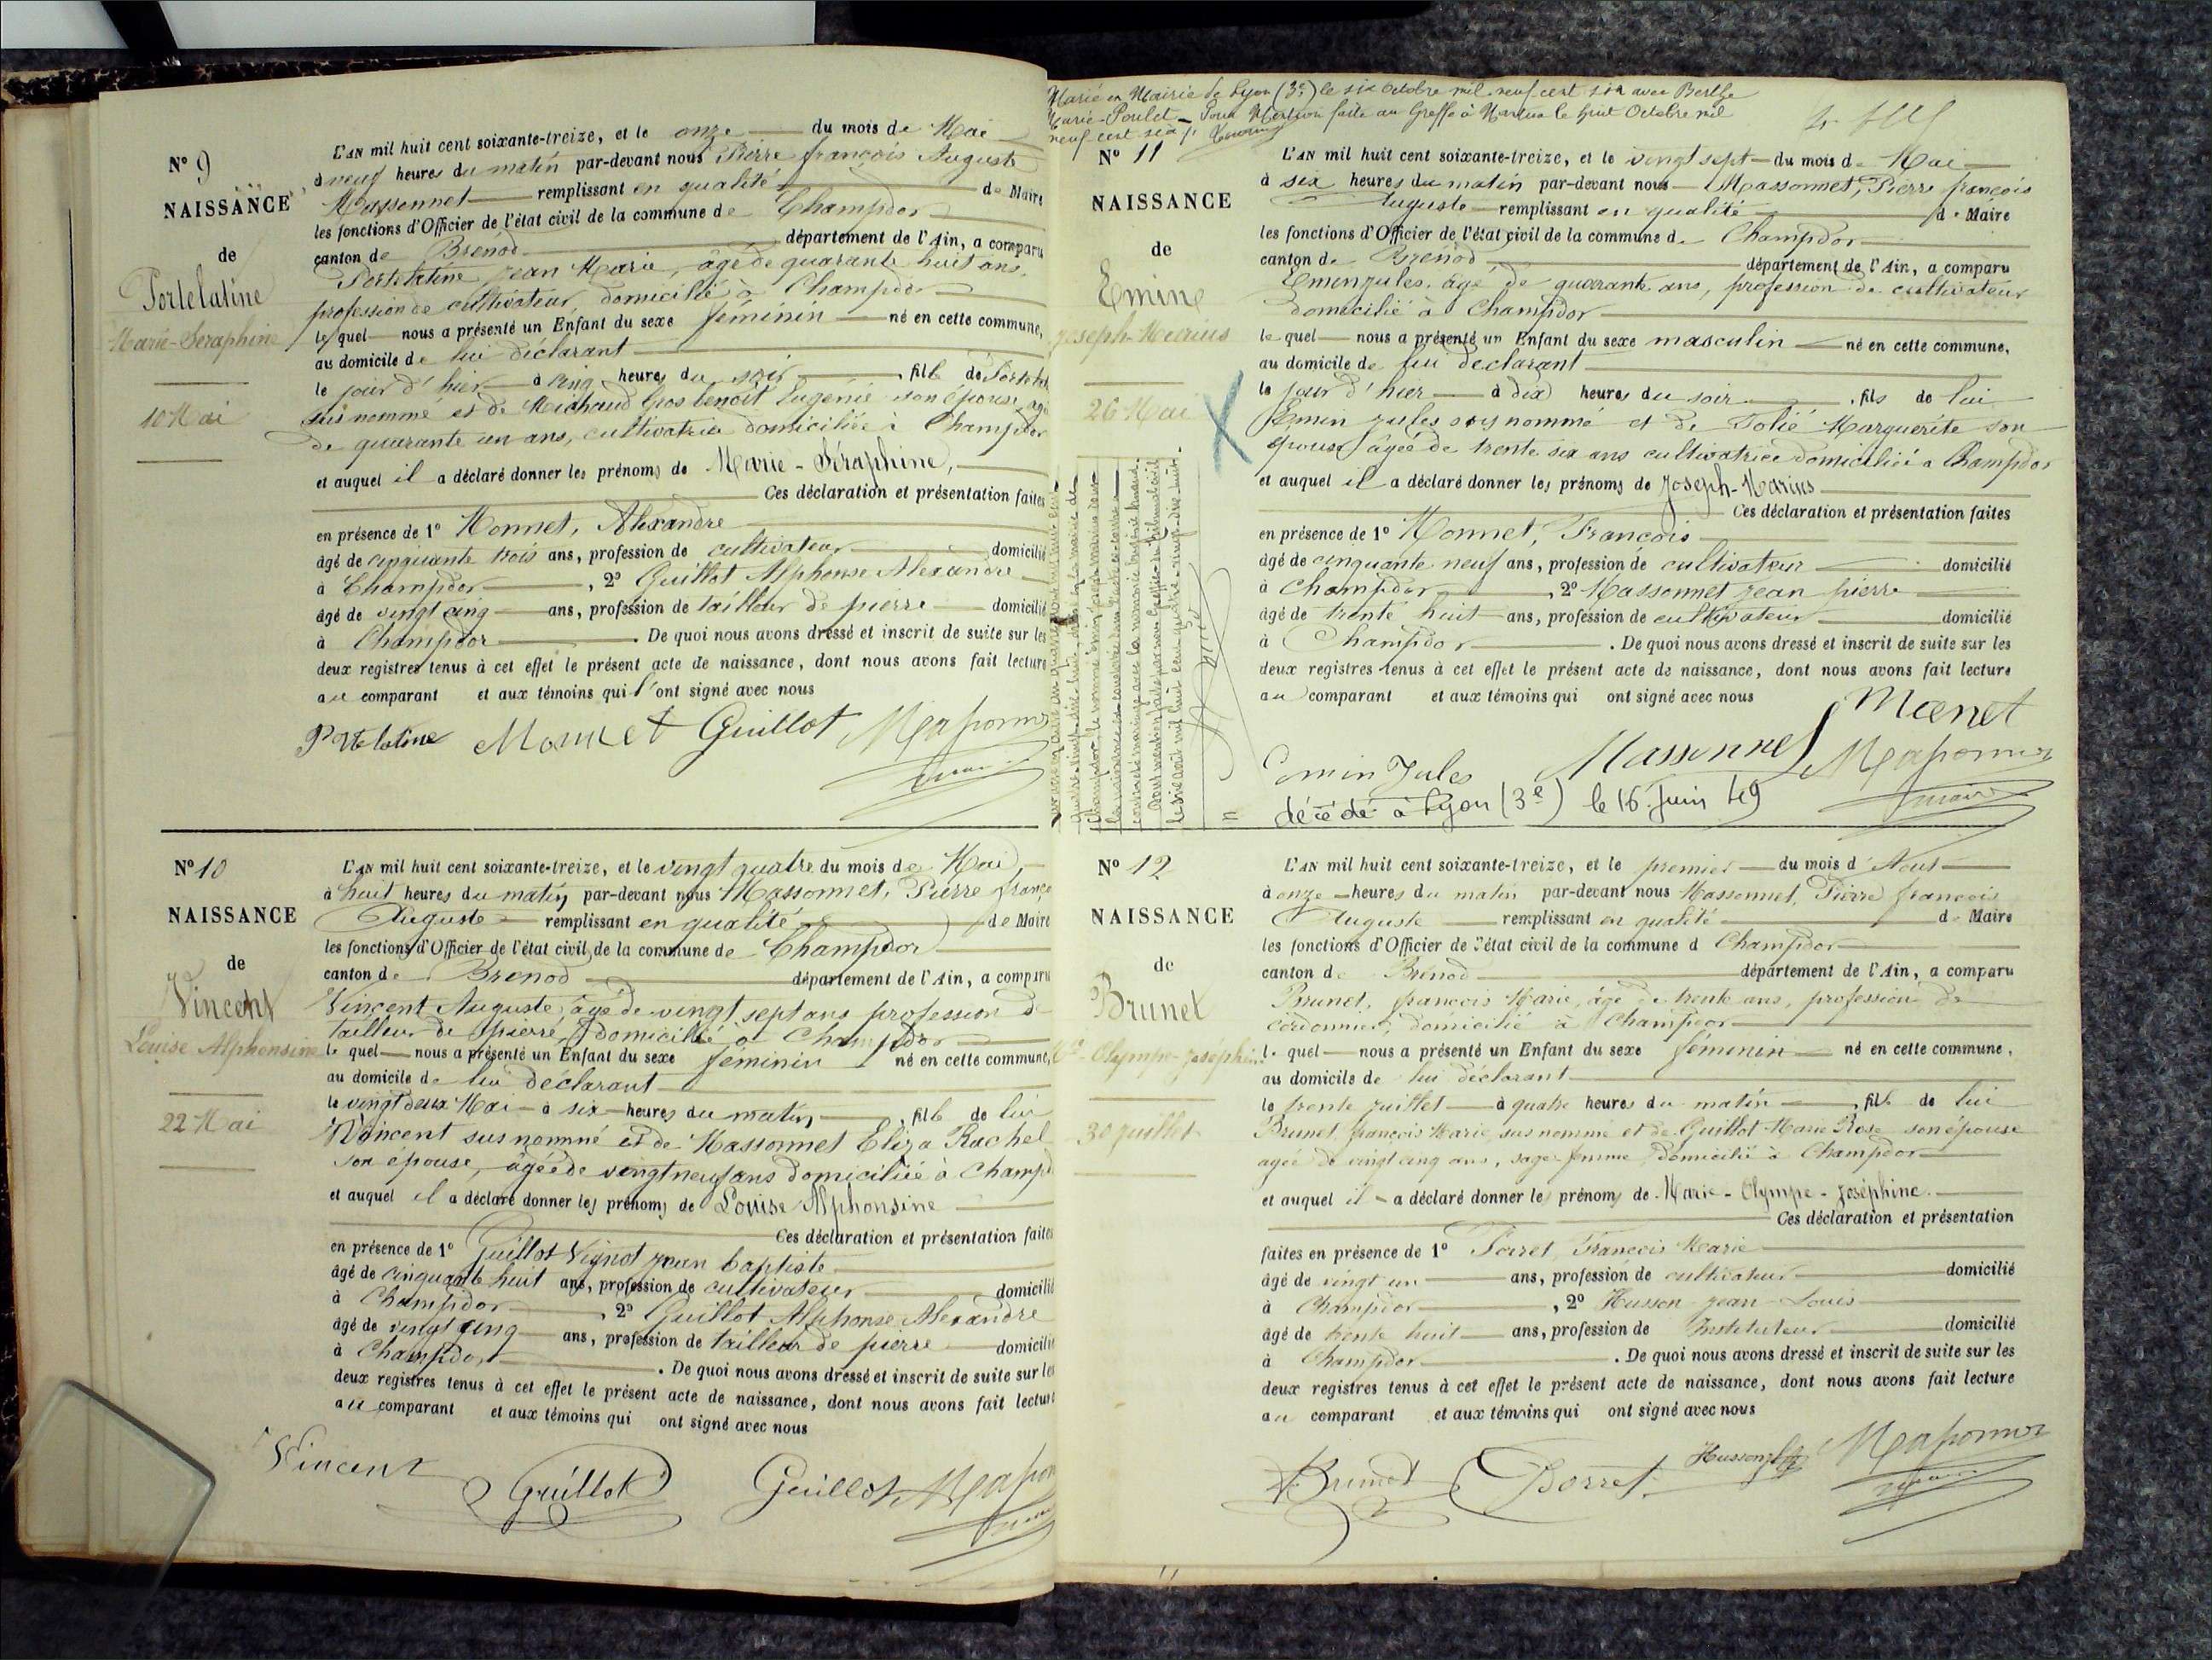 N° 9
NAISSANCE
de
Portelatine
Marie-Seraphine
10 Mai
L'AN mil huit cent soixante-treize, et le onze du mois de Mai
à neuf heures du matin par-devant nous Pierre françois Auguste
Massonnet remplissant en qualité de Maire
les fonctions d'Officier de l'état civil de la commune de Champdor
canton de Brénod département de l'Ain, a comparu
Portelatine Jean Marie, agé de quarante huit ans,
profession de cultivateur domicilié à Champdor
lequel nous a présenté un Enfant du sexe féminin né en cette commune,
au domicile de lui déclarant
le jour d'hier à cinq heures du soir fille de
sus nommé et de Michaud Gros benoît Eugénie son épouse
de quarante un ans, cultivatrice domiciliée à Champdor
et auquel il a déclaré donner les prénoms de Marie-Séraphine,
Ces déclaration et présentation faites
en présence de 1° Monnet, Alexandre
âgé de cinquante trois ans, profession de cultivateur domicilié
à Champdor, 2° Guillot Alphonse Alexandre
âgé de vingt cinq ans, profession de tailleur de pierre domicilié
à Champdor. De quoi nous avons dressé et inscrit de suite sur les
deux registres tenus à cet effet le présent acte de naissance, dont nous avons fait lecture
au comparant et aux témoins qui l'ont signé avec nous
Portelatine Monnet Guillot
N° 10
NAISSANCE
de
Vincent
Louise Alphonsine
22 Mai
L'AN mil huit cent soixante-treize, et le vingt quatre du mois de Mai
à huit heures du matin par-devant nous Massonnet, Pierre
Auguste remplissant en qualité de Maire
les fonctions d'Officier de l'état civil de la commune de Champdor
canton de Brenod département de l'Ain, a comparu
Vincent Auguste, âgé de vingt sept ans profession de
tailleur de pierre, domicilié à Champdor
lequel nous a présenté un Enfant du sexe féminin né en cette commune,
au domicile de lui déclarant
le vingt deux Mai à six heures du matin, fille de lui
Vincent sus nommé et de Massonnet Eliza Rachel
son épouse, âgée de vingt neuf ans domiciliée à
et auquel il a déclaré donner les prénoms de Louise Alphonsine
Ces déclaration et présentation faites
en présence de 1° Guillot Vignot jean baptiste
âgé de cinquante huit ans, profession de cultivateur domicilié
à Champdor, 2° Guillot Alphonse Alexandre
âgé de vingt cinq ans, profession de tailleur de pierre domicilié
à Champdor. De quoi nous avons dressé et inscrit de suite sur les
deux registres tenus à cet effet le présent acte de naissance, dont nous avons fait lecture
au comparant et aux témoins qui ont signé avec nous
Vincent Guillot Guillot
Marié en Mairie de Lyon (3e) le six Octobre mil neuf cent six avec Berthe
Marie Poulet - Pour Mention faite au Greffe à Nantua le huit Octobre mil
neuf cent six
N° 11
NAISSANCE
de
Emine
Joseph-Marius
26 Mai
L'AN mil huit cent soixante-treize, et le vingt sept du mois de Mai
à six heures du matin par-devant nous Massonnet, Pierre françois
Auguste remplissant en qualité de Maire
les fonctions d'Officier de l'état civil de la commune de Champdor
canton de Brénod département de l'Ain, a comparu
Emin jules, âgé de quarante ans, profession de cultivateur
domicilié à Champdor
lequel nous a présenté un Enfant du sexe masculin né en cette commune,
au domicile de lui declarant
le jour d'hier à dix heures du soir, fils de lui
Emin jules sus nommé et de Tolié Marguerite son
épouse âgée de trente six ans cultivatrice domiciliée a Champdor
et auquel il a déclaré donner les prénoms de Joseph-Marius
Ces déclaration et présentation faites
en présence de 1° Monnet, François
âgé de cinquante neuf ans, profession de cultivateur domicilié
à Champdor, 2° Massonnet jean pierre
âgé de trente huit ans, profession de cultivateur domicilié
à Champdor. De quoi nous avons dressé et inscrit de suite sur les
deux registres tenus à cet effet le présent acte de naissance, dont nous avons fait lecture
au comparant et aux témoins qui ont signé avec nous
Emin Jules Massonnet
décédé à Lyon (3e) le 16 Juin 49
N° 12
NAISSANCE
de
Brunet
Olympe-Joséphine
30 juillet
L'AN mil huit cent soixante-treize, et le premier du mois d'Aout
à onze heures du matin par-devant nous Massonnet, Pierre françois
Auguste remplissant en qualité de Maire
les fonctions d'Officier de l'état civil de la commune d Champdor
canton de Brénod département de l'Ain, a comparu
Brunet, françois Marie, âgé de trente ans, profession de
cordonnier, domicilié à Champdor
lequel nous a présenté un Enfant du sexe féminin né en cette commune,
au domicile de lui déclarant
le trente juillet à quatre heures du matin, fille de lui
Brunet françois Marie sus nommé et de Guillot Marie Rose son épouse
agée de vingt cinq ans, sage femme, domicilié à Champdor
et auquel il a déclaré donner les prénoms de Marie-Olympe-Joséphine.
Ces déclaration et présentation
faites en présence de 1° François Marie
âgé de vingt un ans, profession de cultivateur domicilié
à Champdor, 2° Husson jean Louis
âgé de trente huit ans, profession de Instituteur domicilié
à Champdor. De quoi nous avons dressé et inscrit de suite sur les
deux registres tenus à cet effet le présent acte de naissance, dont nous avons fait lecture
au comparant et aux témoins qui ont signé avec nous
Brunet